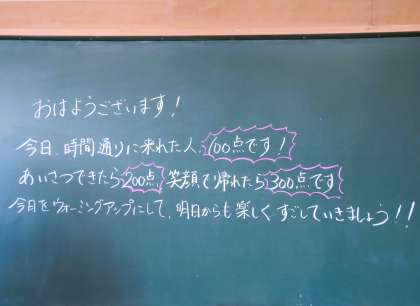 おはようございます!
今日、時間通りに来れた人、100点です!
あいさつできたら200点、笑顔で帰れたら300点です
今日をウォーミングアップにして、明日からも楽しくすごしていきましょう!!